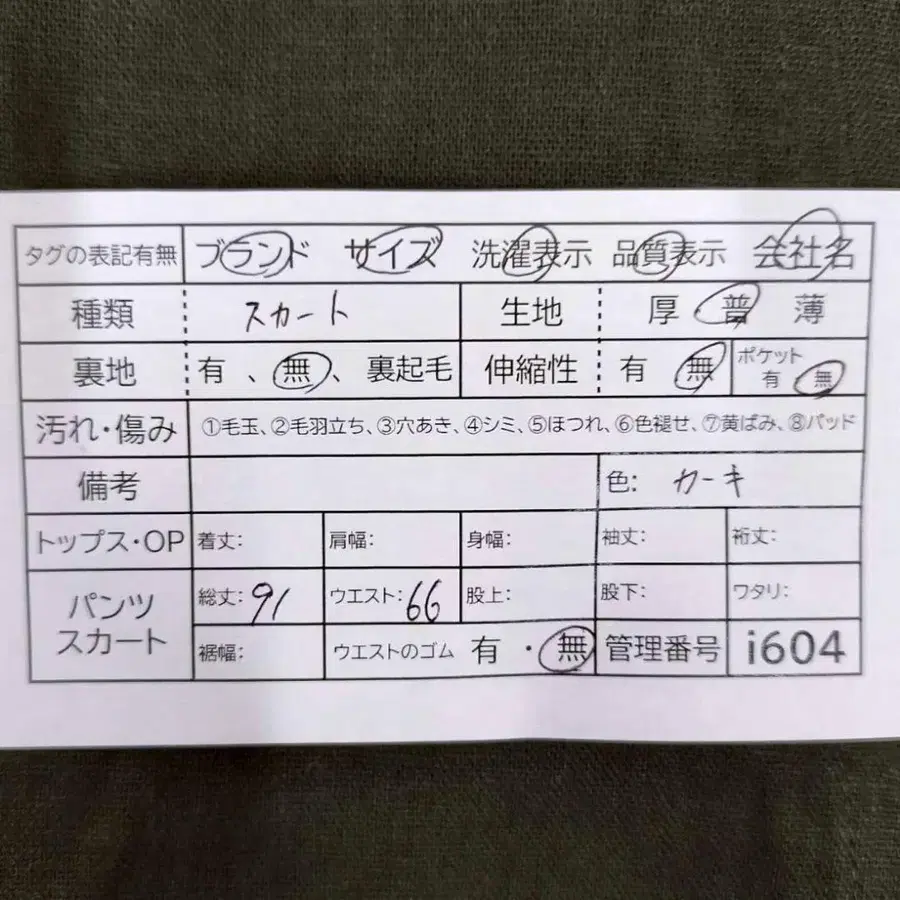 タグの表記有無 ブランド サイズ 洗濯表示 品質表示 会社名
種類 スカート 生地 厚 普 薄
裏地 有 、 無 、 裏起毛 伸縮性 有 無 ポケット 有 無
汚れ・傷み ①毛玉、②毛羽立ち、③穴あき、④シミ、⑤ほつれ、⑥色褪せ、⑦黄ばみ、⑧パッド
備考 色: カーキ
トップス・OP 着丈: 肩幅: 身幅: 袖丈: 裄丈:
パンツ スカート 総丈: 91 ウエスト: 66 股上: 股下: ワタリ:
裾幅: ウエストのゴム 有 ・ 無 管理番号 i604